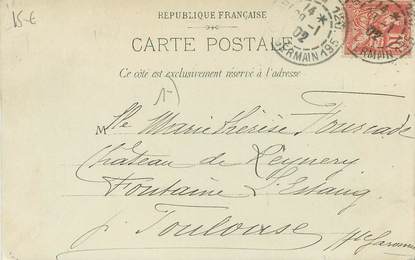 15-€
RÉPUBLIQUE FRANÇAISE
CARTE POSTALE
Ce côté est exclusivement réservé à l'adresse
Mlle Marie Thérèse Fourcade
Château de Reynery
Fontaine Lestang
pr Toulouse
Hte Garonne